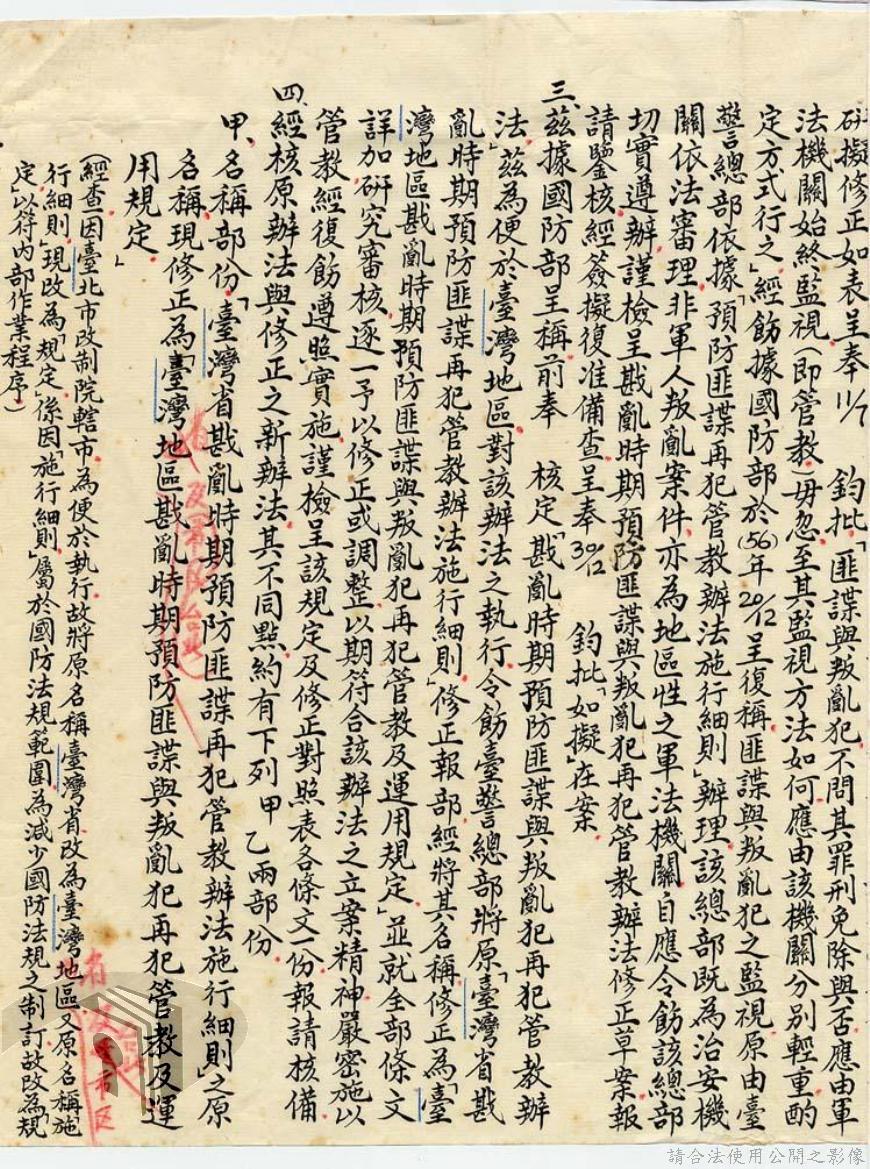 研擬修正如表呈奉11/7 鈞批「匪諜與叛亂犯不問其罪刑免除與否應由軍
法機關始終監視(即管教)毋忽至其監視方法如何應由該機關分別輕重酌
定方式行之」經飭據國防部於(56)年20/12呈復稱匪諜與叛亂犯之監視原由臺
警總部依據「預防匪諜再犯管教辦法施行細則」辦理該總部既為治安機
關依法審理非軍人叛亂案件亦為地區性之軍法機關自應令飭該總部
切實遵辦謹檢呈戡亂時期預防匪諜與叛亂犯再犯管教辦法修正草案報
請鑒核經簽擬復准備查呈奉30/12 鈞批「如擬」在案
三、茲據國防部呈稱前奉 核定「戡亂時期預防匪諜與叛亂犯再犯管教辦
法」茲為便於臺灣地區對該辦法之執行令飭臺警總部將原「臺灣省戡
亂時期預防匪諜再犯管教辦法施行細則」修正報部經將其名稱修正為「臺
灣地區戡亂時期預防匪諜與叛亂犯再犯管教及運用規定」並就全部條文
詳加研究審核逐一予以修正或調整以期符合該辦法之立案精神嚴密施以
管教經復飭遵照實施謹檢呈該規定及修正對照表各條文一份報請核備
四、經核原辦法與修正之新辦法其不同點約有下列甲乙兩部份
甲、名稱部份「臺灣省戡亂時期預防匪諜再犯管教辦法施行細則」之原
名稱現修正為「臺灣地區戡亂時期預防匪諜與叛亂犯再犯管教及運
用規定」
(經查一因臺北市改制院轄市為便於執行故將原名稱臺灣省改為臺灣地區又原名稱施
行細則」現改為「規定」係因「施行細則」屬於國防法規範圍為減少國防法規之制訂故改為「規
定」以符內部作業程序)
省及
請合法使用公開之影像